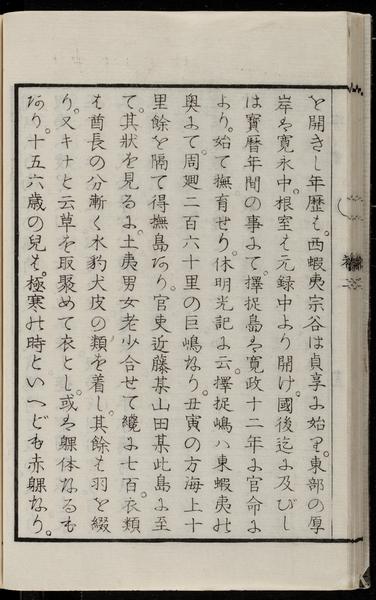 を開きし年歴も。西蝦夷宗谷は貞享に始り。東部の厚
岸は寛永中。根室も元録中より開け。國後迄に及びし
は寳暦年間の事にて。擇捉島は寛政十二年に官命に
より。始て撫育せり。休明光記に云。擇捉嶋ハ東蝦夷の
奥にて。周廻二百六十里の巨嶋なり。丑寅の方海上十
里餘を隔て得撫島あり。官吏近藤某山田某此島に至
て。其狀を見るに。土夷男女老少合せて纔に七百。衣類
も酋長の分漸く水豹犬皮の類を着し。其餘も羽を綴
り。又キナと云草を取聚めて衣とし。或は躶体なるも
あり。十五六歳の兒も。極寒の時といへども赤躶なり。